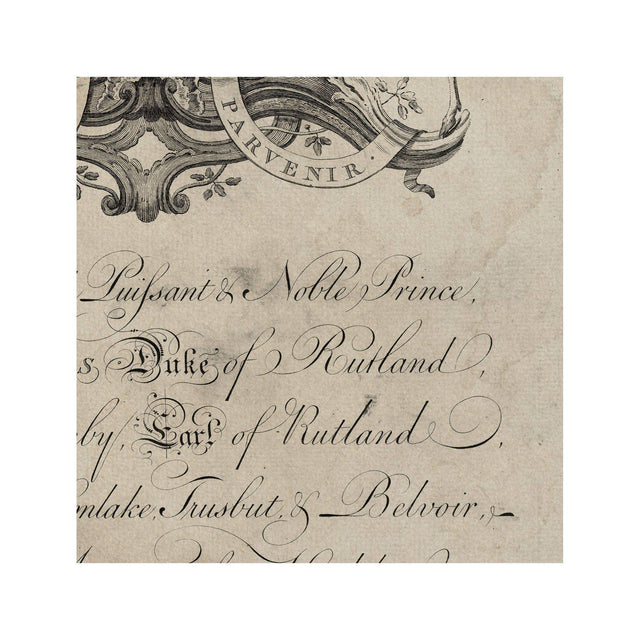 PARVENIR.
Puiſsant & Noble Prince,
s Duke of Rutland,
by, Earl of Rutland,
nlake, Trusbut, & Belvoir, &